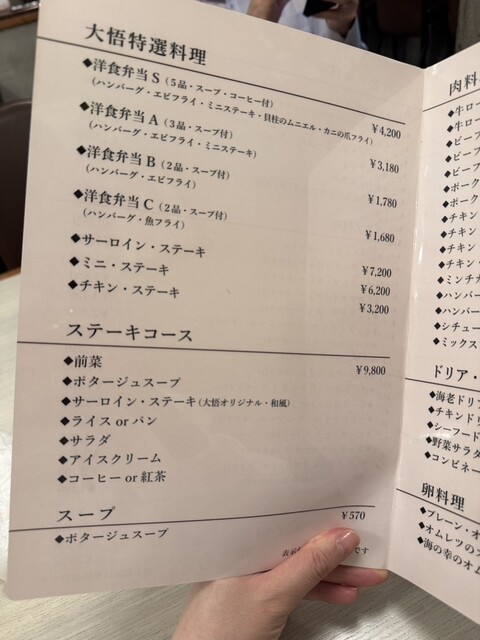 大悟特選料理
◆洋食弁当S（5品・スープ・コーヒー付） ￥4,200
（ハンバーグ・エビフライ・ミニステーキ・貝柱のムニエル・カニの爪フライ）
◆洋食弁当A（3品・スープ付） ￥3,180
（ハンバーグ・エビフライ・ミニステーキ）
◆洋食弁当B（2品・スープ付） ￥1,780
（ハンバーグ・エビフライ）
◆洋食弁当C（2品・スープ付） ￥1,680
（ハンバーグ・魚フライ）
◆サーロイン・ステーキ ￥7,200
◆ミニ・ステーキ ￥6,200
◆チキン・ステーキ ￥3,200
ステーキコース
◆前菜 ￥9,800
◆ポタージュスープ
◆サーロイン・ステーキ（大悟オリジナル・和風）
◆ライス or パン
◆サラダ
◆アイスクリーム
◆コーヒー or 紅茶
スープ
◆ポタージュスープ ￥570
表示
です
肉料
◆牛ロー
◆牛ロー
◆ビーフ
◆ビーフ
◆ビーフ
◆ポーク
◆ポーク
◆チキン
◆チキン
◆チキン
◆チキン・
◆ミンチカ
◆ハンバー
◆ハンバー
◆シチュー
◆ミックス
ドリア・
◆海老ドリア
◆チキンドリ
◆シーフード
◆野菜サラダ
◆コンビネー
卵料理
◆プレーン・オ
◆オムレツの
◆海の幸のオム